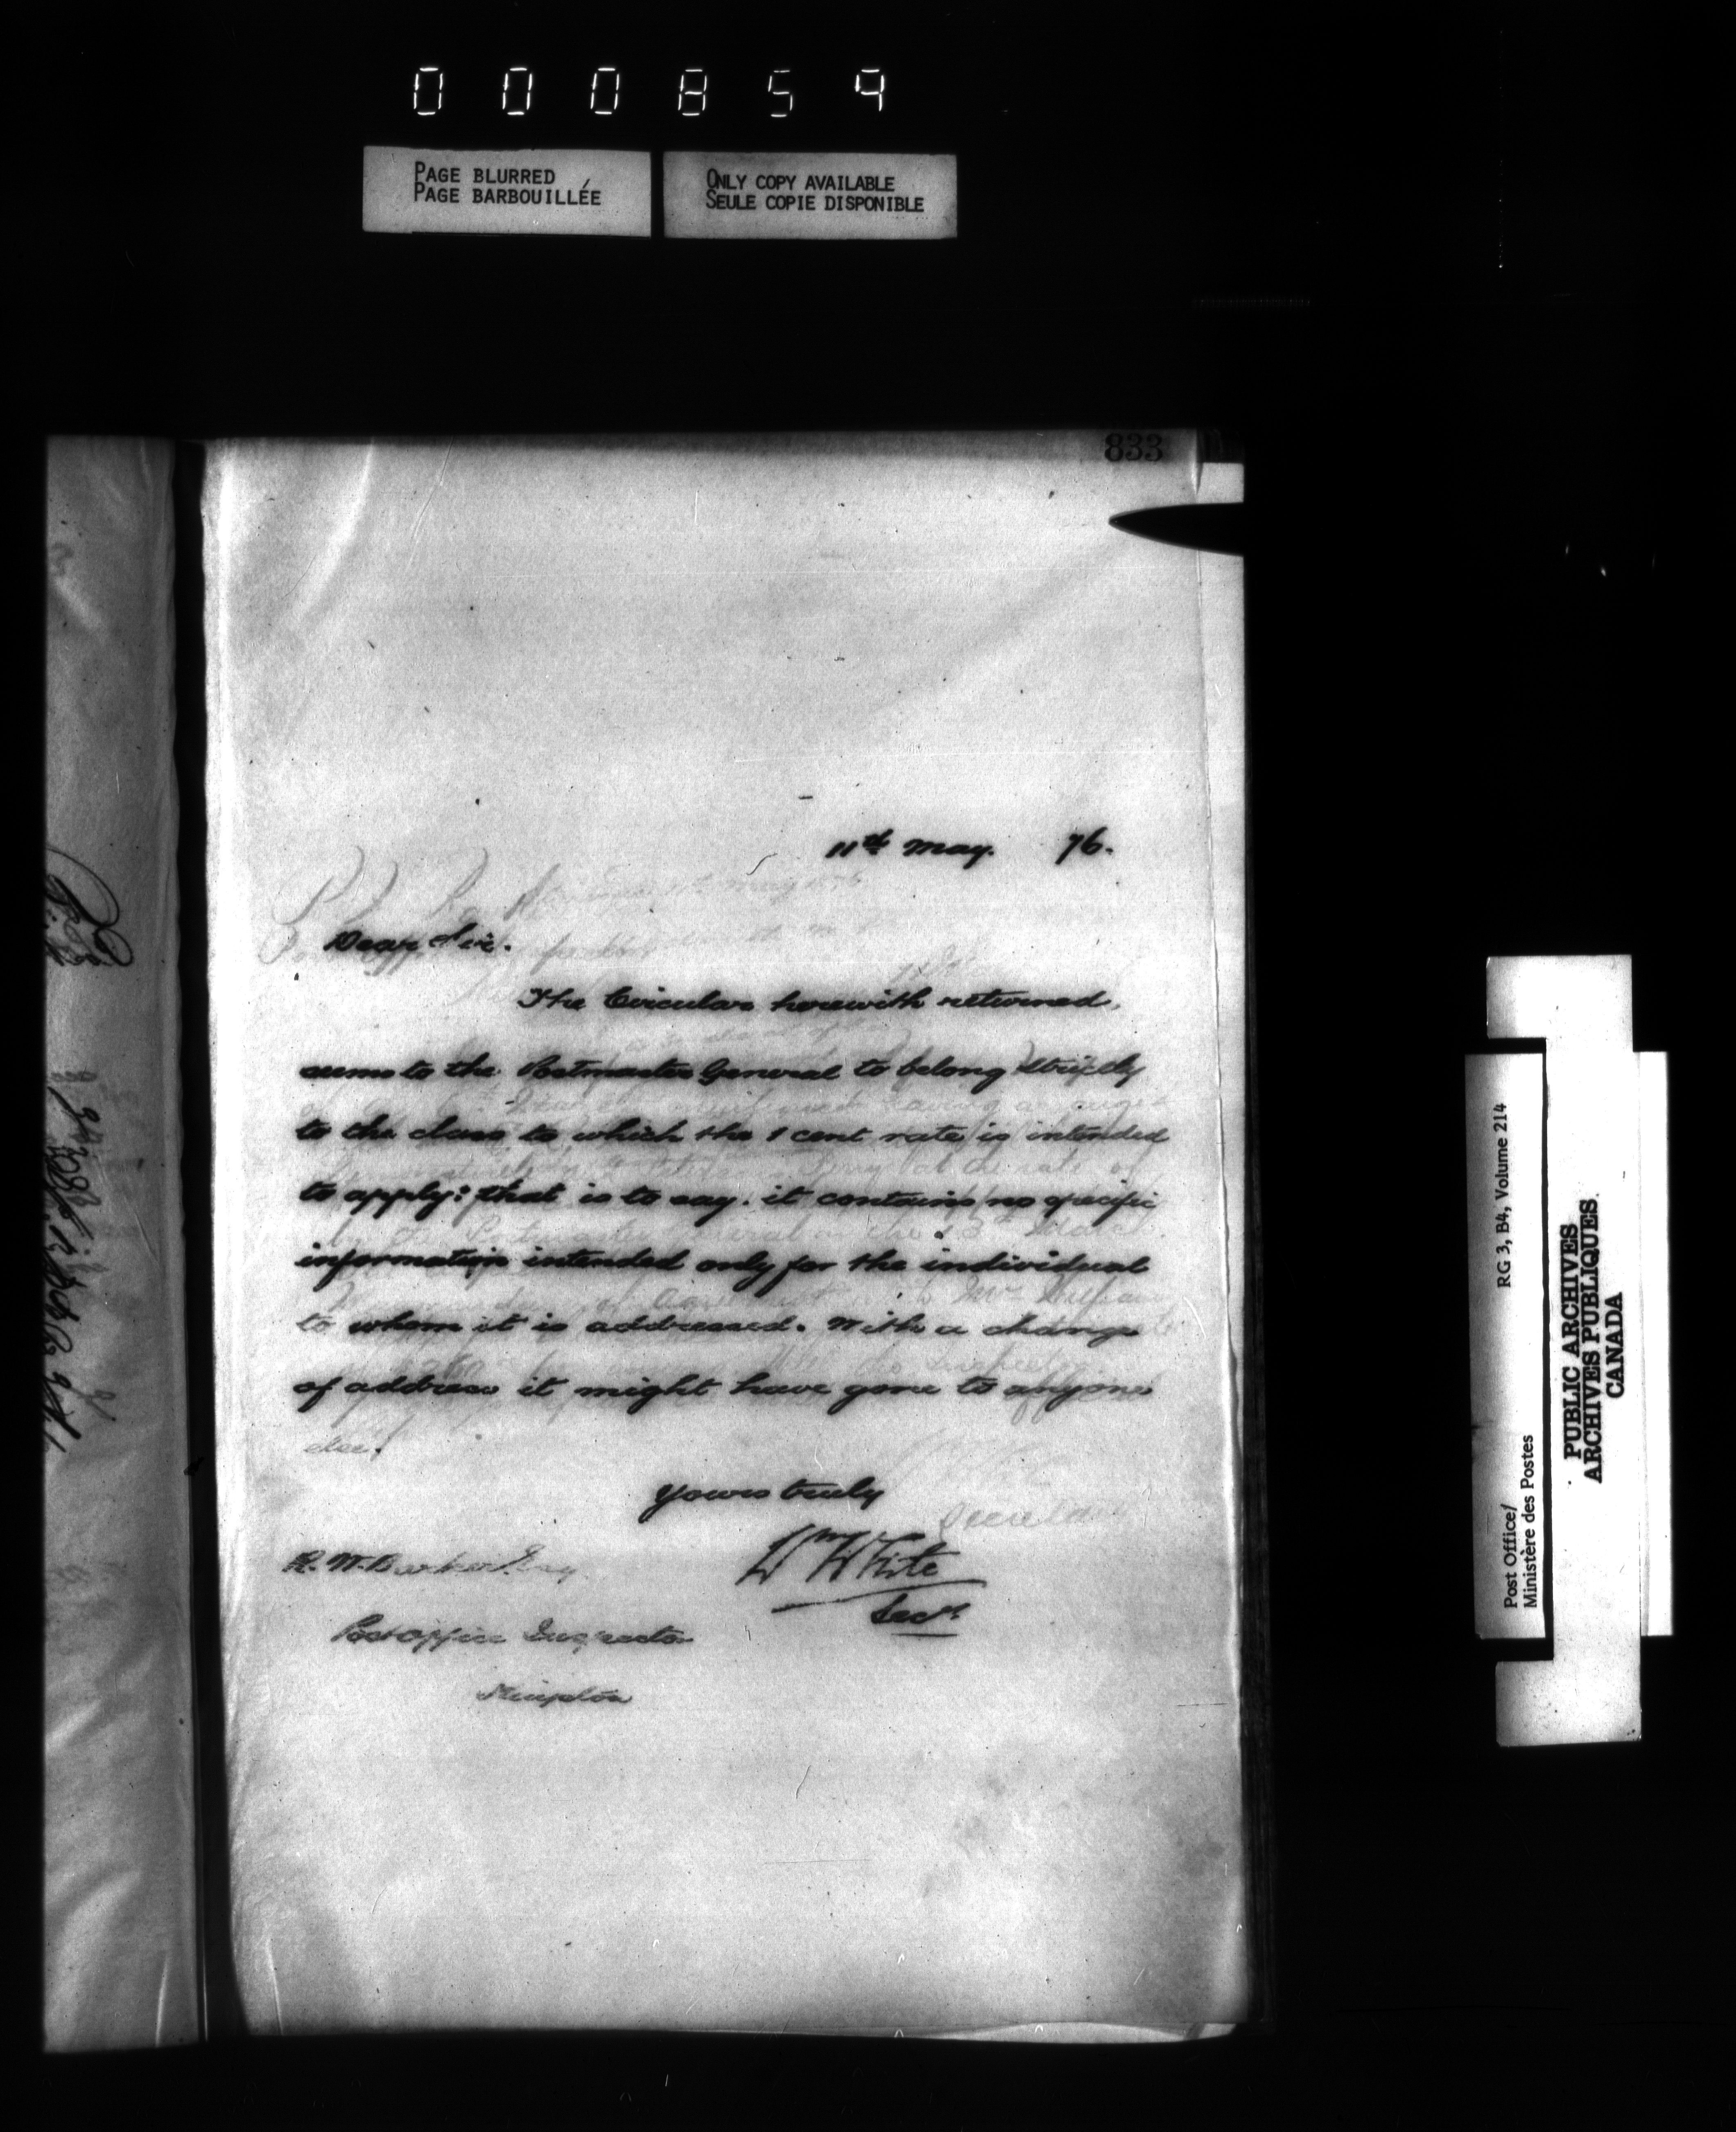 000859
PAGE BLURRED
PAGE BARBOUILLÉE
ONLY COPY AVAILABLE
SEULE COPIE DISPONIBLE
833
11th May. 76.
Dear Sir.
The Circular herewith returned,
seems to the Postmaster General to belong strictly
to the class to which the 1 cent rate is intended
to apply: that is to say. it contains no specific
information intended only for the individual
to whom it is addressed. With a change
of address it might have gone to anyone
else.
Yours truly
Wm White
Secy
R. W. Barker Esq
Post Office Inspector
Kingston
Post Office/
Ministère des Postes
RG 3, B4, Volume 214
PUBLIC ARCHIVES
ARCHIVES PUBLIQUES
CANADA